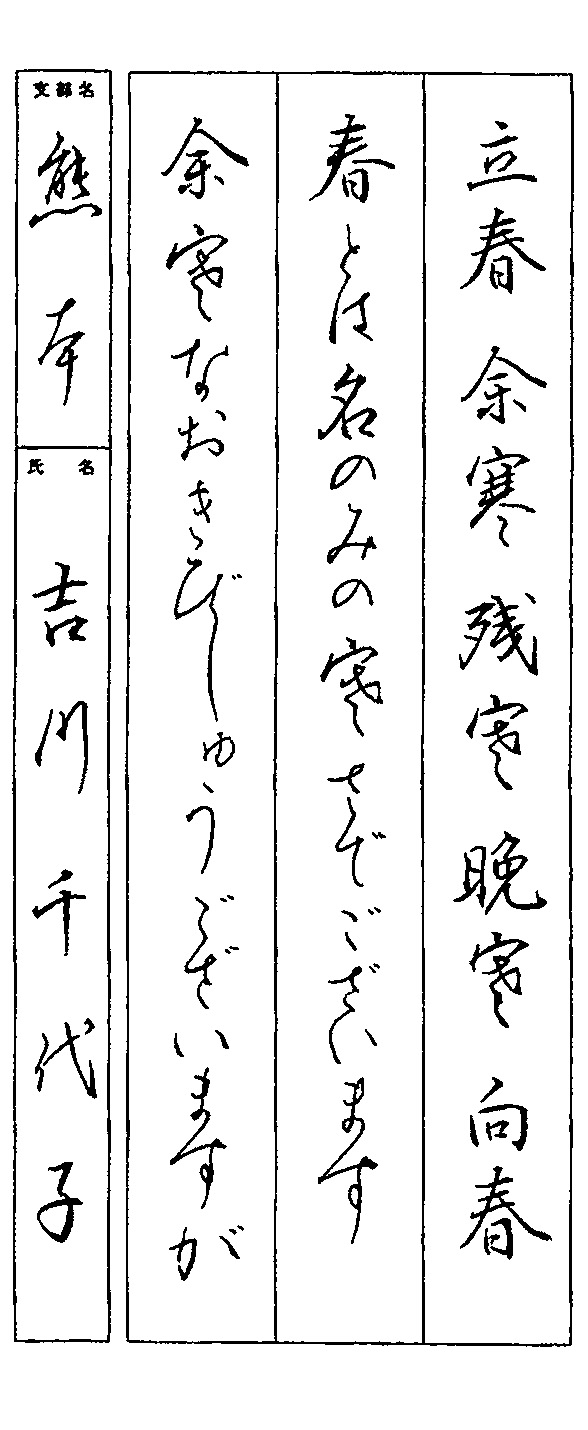 立春 余寒 残寒 晩寒 向春
春とは名のみの寒さでございます
余寒なおきびしゅうございますが
支部名
熊本
氏名
吉川千代子